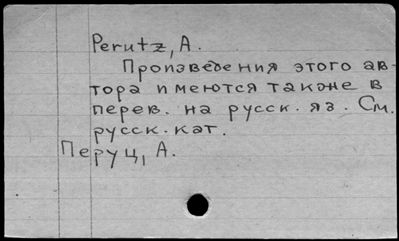 Perutz, A.
Произведения этого ав-
тора имеются также в
перев. на русск. яз. См.
русск. кат.
Перуц, А.